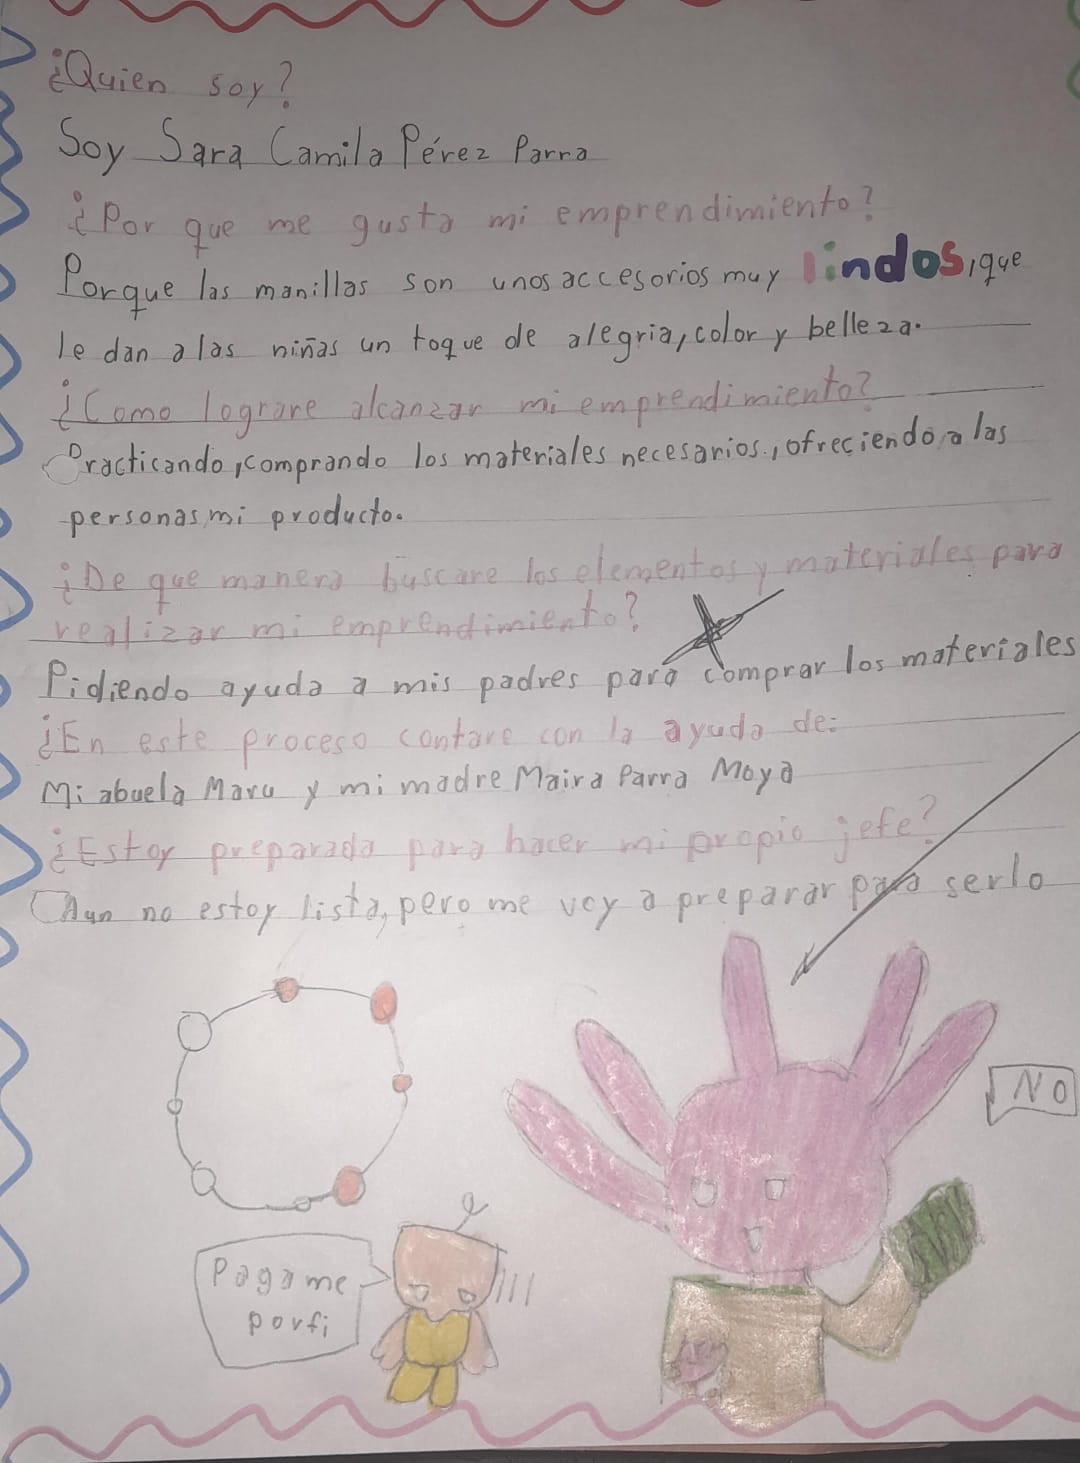 ¿Quien soy?
Soy Sara Camila Pérez Parra
¿Por que me gusta mi emprendimiento?
Porque las manillas son unos accesorios muy lindos, que
le dan a las niñas un toque de alegria, color y belleza.
¿Como lograre alcanzar mi emprendimiento?
Practicando, comprando los materiales necesarios., ofreciendo a las
personas mi producto.
¿De que manera buscare los elementos y materiales para
realizar mi emprendimiento?
Pidiendo ayuda a mis padres para comprar los materiales
¿En este proceso contare con la ayuda de:
Mi abuela Maru y mi madre Maira Parra Moya
¿Estoy preparada para hacer mi propio jefe?
Aun no estoy lista, pero me voy a preparar para serlo
NO
Pagame
porfi